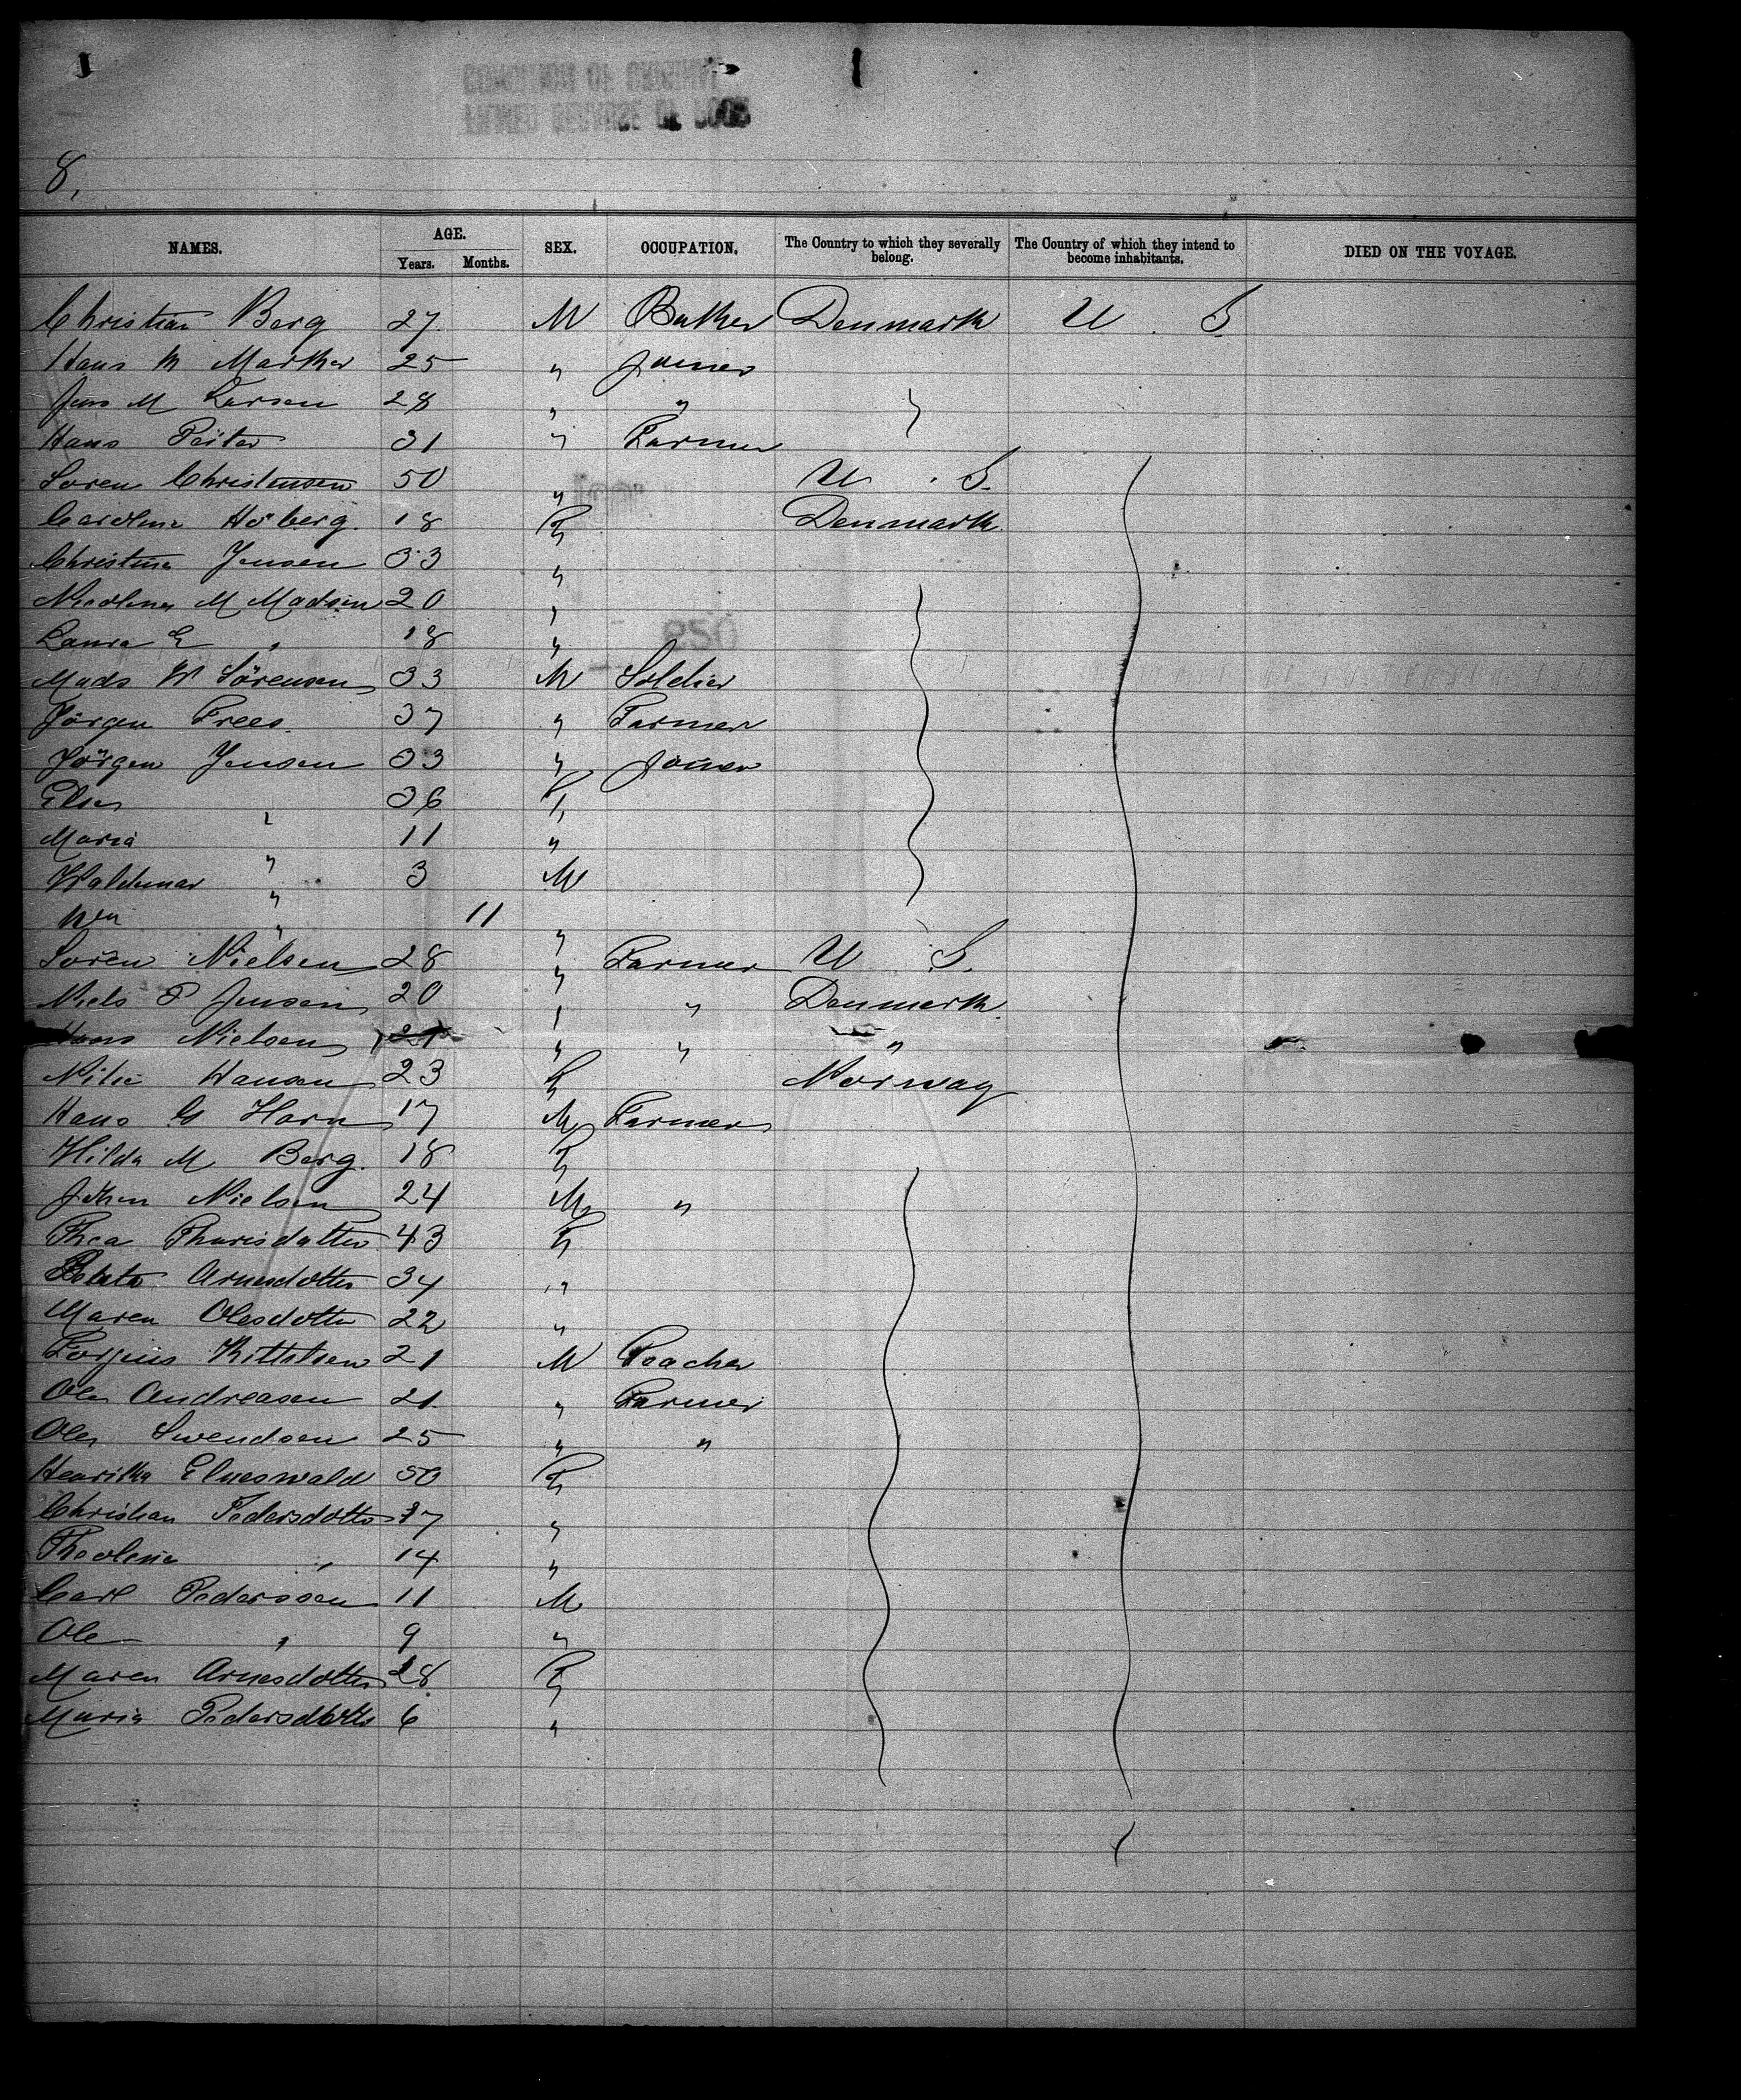 CONDITION OF ORIGINAL
8.
NAMES. AGE. SEX. OCCUPATION. The Country to which they severally belong. The Country of which they intend to become inhabitants. DIED ON THE VOYAGE.
Years. Months.
Christian Berg 27 M Baker Denmark U. S
Hans M Marker 25 " Joiner
Jens M Larsen 28 " "
Hans Peiter 31 " Farmer
Soren Christensen 50 " U. S.
Carolina Hoberg. 18 F Denmark.
Christina Jensen 33 "
M Madsen 20 "
Laura E " 18 "
Mads W Sörensen 33 M Soldier
Jörgen Frees. 37 " Farmer
Jörgen Jensen 33 " Joiner
Elsa " 36 F
Maria " 11 "
Waldemar " 3 M
" 11 "
Soren Nielsen 28 " Farmer U S.
Niels P Jensen 20 " " Denmark.
Hans Nielsen 21 " " "
Hansen 23 F Norway
Hans G Horn 17 M Farmer
Hilda M Berg. 18 F
Nielsen 24 M "
Thea 43 F
Arnesdotter 34 "
Maren Olesdotter 22 "
Kittilsen 21 M
Ole Andreasen 21 " Farmer
Ole Swendsen 25 " "
Henrikka 50 F
Christian Pedersdotter 37 "
Theoline " 14 "
Carl Pederssen 11 M
Ole " 9 "
Maren Arnesdotter 28 F
Maria Pedersdotter 6 "